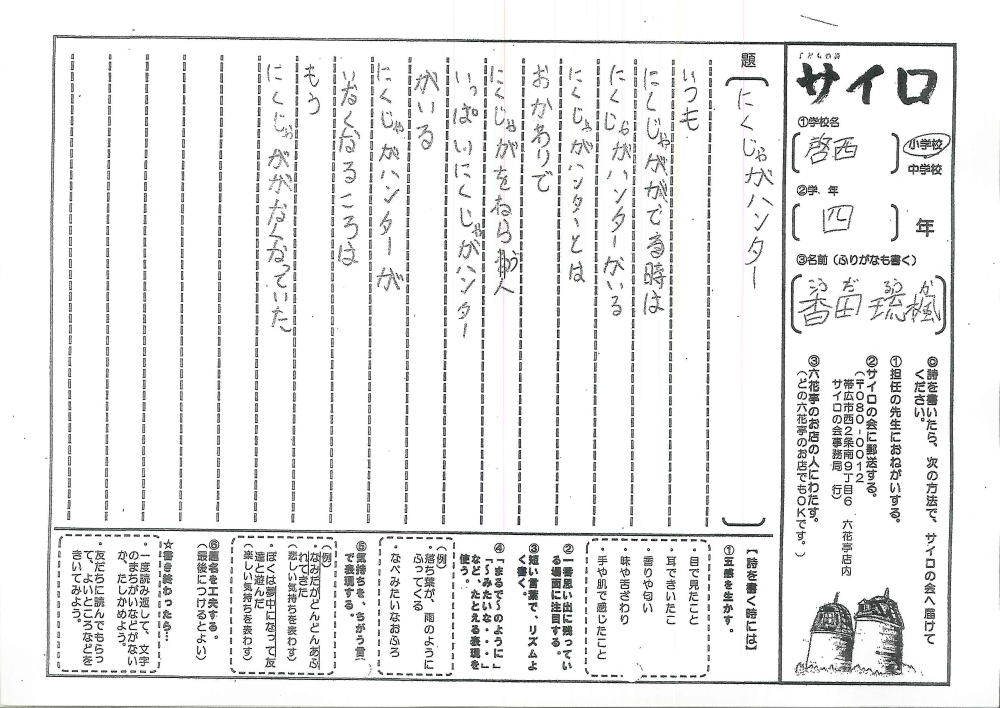 こどもの詩
サイロ
①学校名
啓西
小学校
中学校
②学 年
四
年
③名前（ふりがなも書く）
こうだ るうか
香田 琉楓
◎詩を書いたら、次の方法で、サイロの会へ届けて
ください。
①担任の先生におねがいする。
②サイロの会に郵送する。
（〒080-0012
帯広市西2条南9丁目6 六花亭店内
サイロの会事務局 行）
③六花亭のお店の人にわたす。
（どの六花亭のお店でもOKです。）
題
にくじゃがハンター
いつも
にくじゃがができる時は
にくじゃがハンターがいる
にくじゃがハンターとは
おかわりで
にくじゃがをねらう人
いっぱいにくじゃがハンター
がいる
にくじゃがハンターが
いなくなるころは
もう
にくじゃががなくなっていた
【詩を書く時には】
①五感を生かす。
・目で見たこと
・耳できいたこと
・香りや匂い
・味や舌ざわり
・手や肌で感じたこと
②一番思い出に残ってい
る場面に注目する。
③短い言葉で、リズムよ
く書く。
④「まるで〜のように」
「〜みたいな・・・」
など、たとえる表現を
使う。
（例）
・落ち葉が、雨のように
ふってくる
・なべみたいなおふろ
⑤気持ちを、ちがう言葉
で表現する。
（例）
・なみだがどんどんあふ
れてきた
（悲しい気持ちを表わす）
・ぼくは夢中になって友
達と遊んだ
（楽しい気持ちを表わす）
⑥題名を工夫する。
（最後につけるとよい）
☆書き終わったら…
・一度読み返して、文字
のまちがいなどがない
か、たしかめよう。
・友だちに読んでもらっ
て、よいところなどを
きいてみよう。